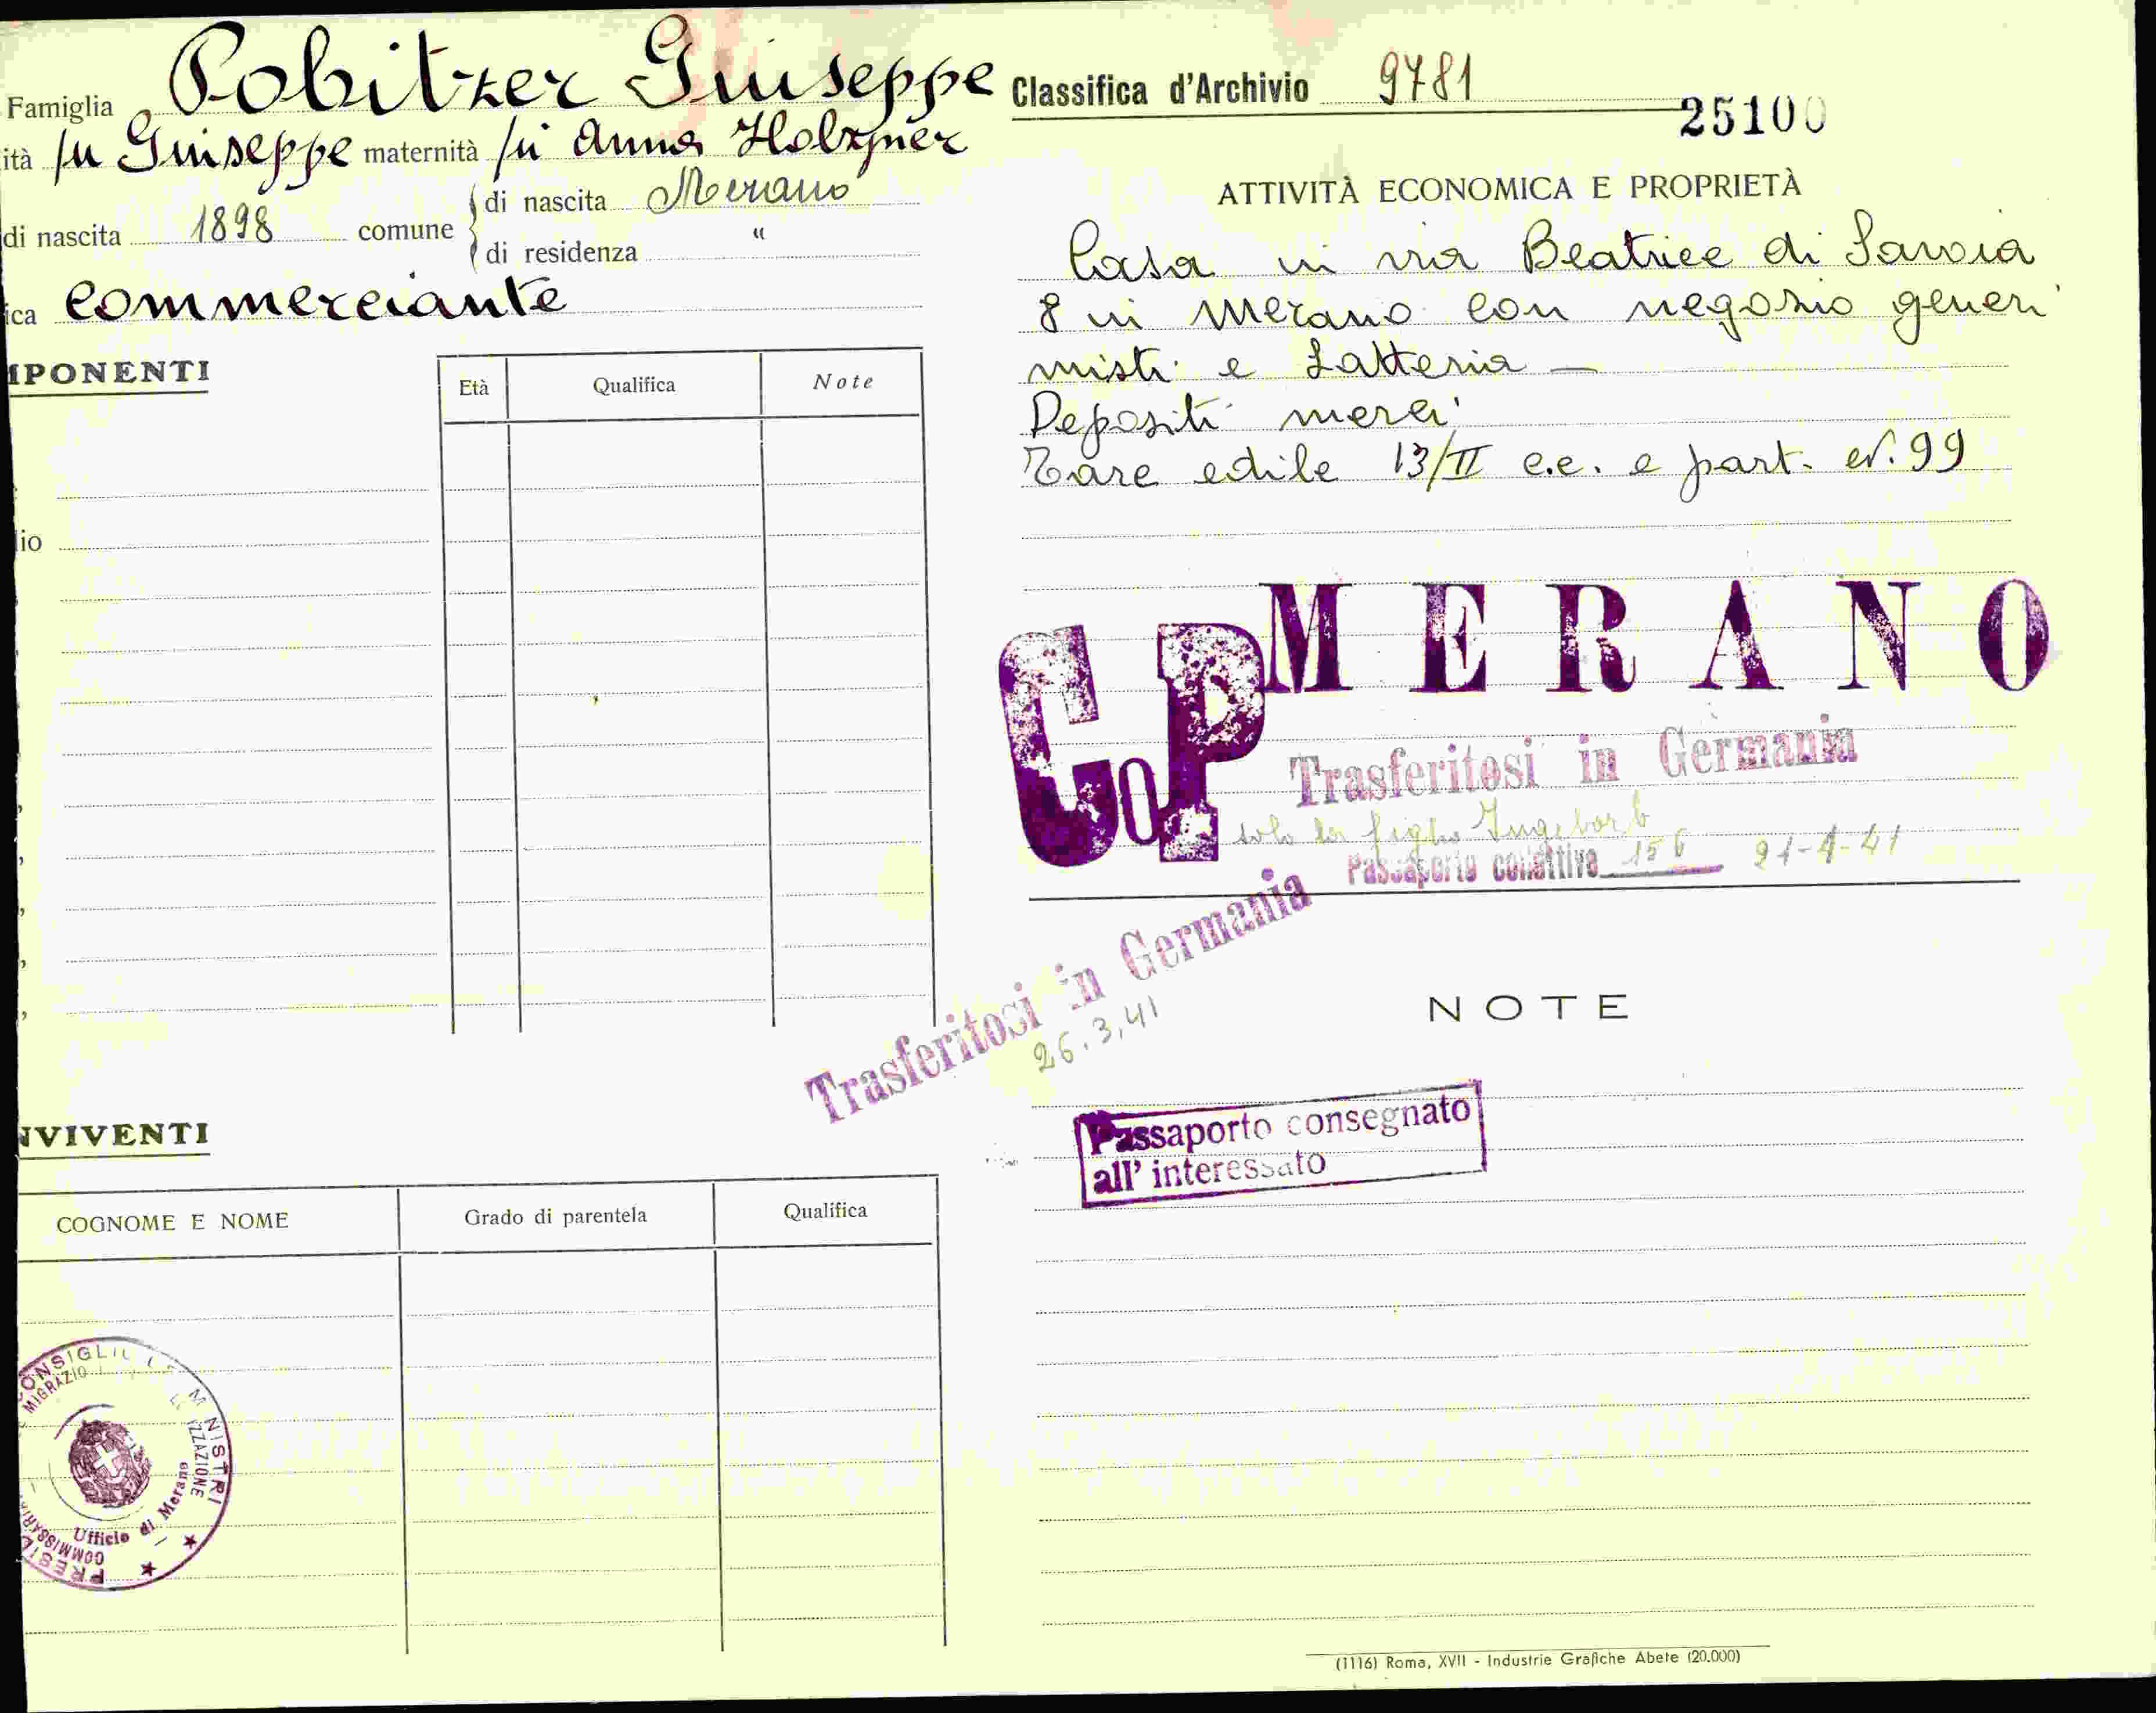 Famiglia Pobitzer Giuseppe
ità fu Giuseppe maternità fu Anna Holzner
di nascita 1898 comune di nascita Merano
di residenza "
ica commerciante
MPONENTI
Età Qualifica Note
lio
NVIVENTI
COGNOME E NOME Grado di parentela Qualifica
CONSIGLIO MINISTRI
MIGRAZIO IZZAZIONE
Ufficio di Merano
COMMISSARI
PRESID
Classifica d'Archivio 9781
25100
ATTIVITÀ ECONOMICA E PROPRIETÀ
Casa in via Beatrice di Savoia
8 in Merano con negozio generi
misti e Latteria —
Depositi merci
Tare edile 13/II c.c. e part. N. 99
CoP MERANO
Trasferitosi in Germania
solo la figlia Ingeborb
Passaporto collettivo 156 21-4-41
Trasferitosi in Germania
26.3,41
NOTE
Passaporto consegnato
all' interessato
(1116) Roma, XVII - Industrie Grafiche Abete (20.000)